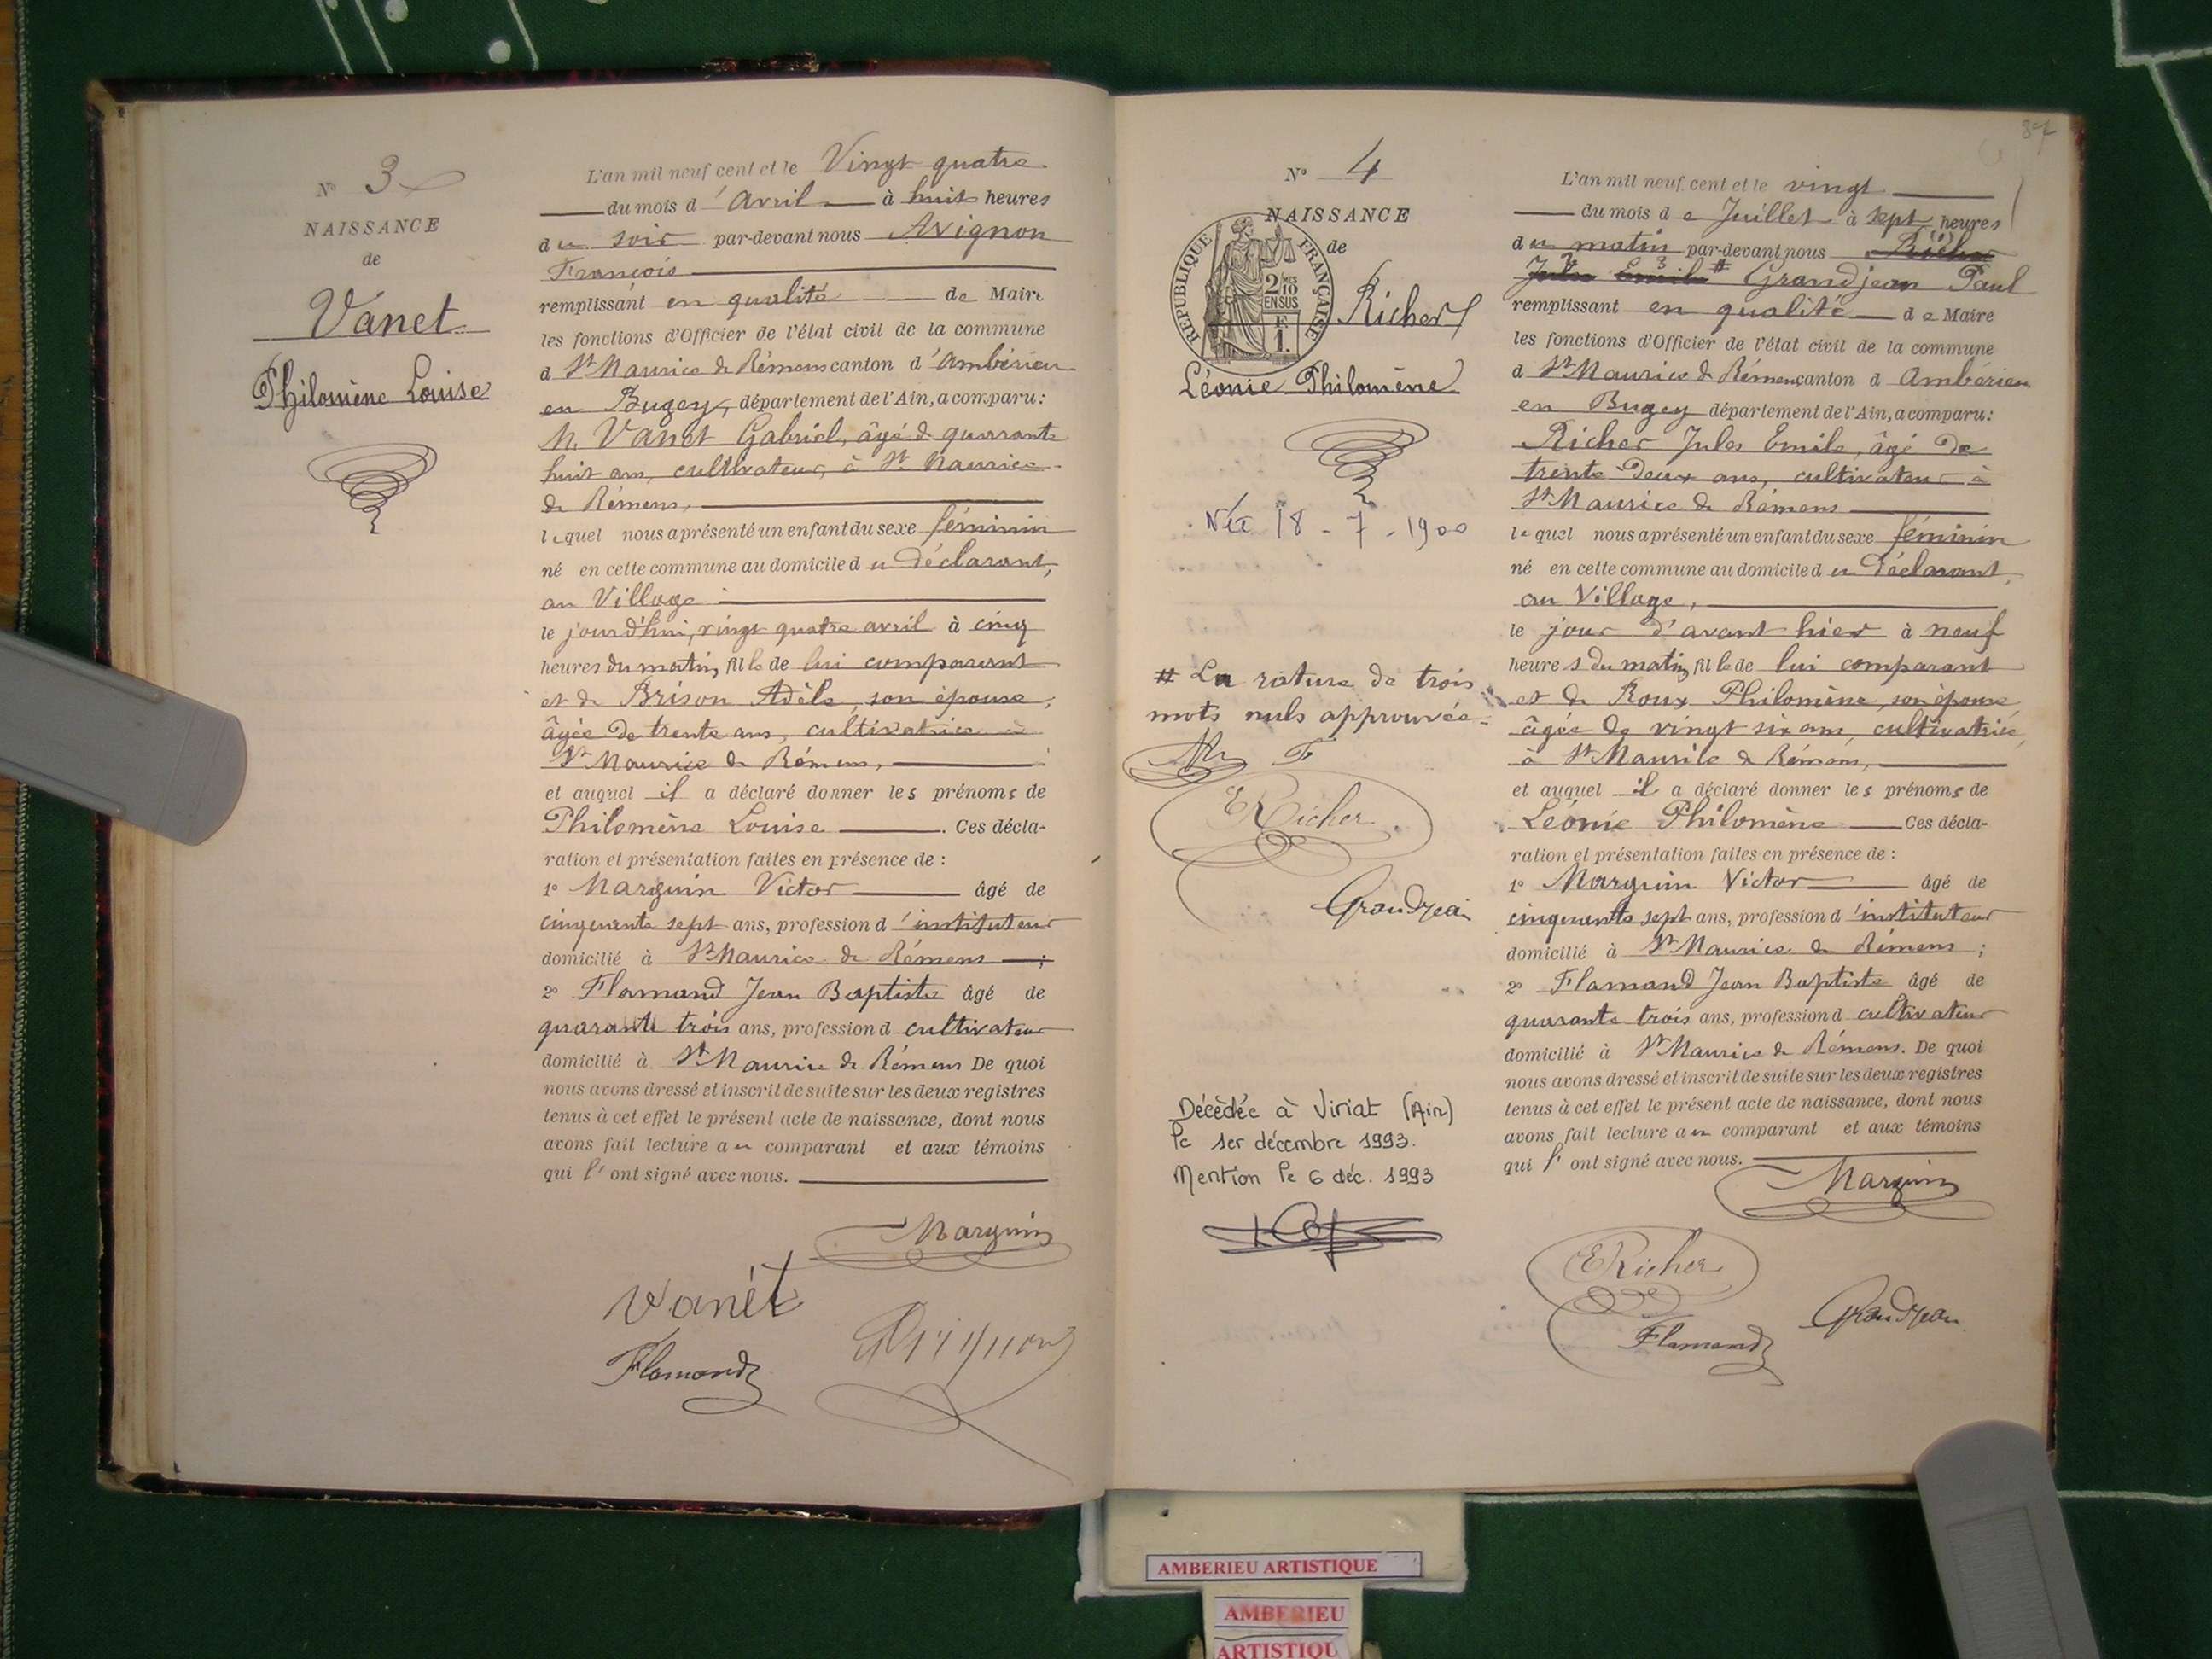 N° 3
NAISSANCE
de
Vanet
Philomène Louise
L'an mil neuf cent et le Vingt quatre
du mois d'Avril à huit heures
du soir par-devant nous Avignon
François
remplissant en qualité de Maire
les fonctions d'Officier de l'état civil de la commune
d St Maurice de Rémens canton d'Ambérieu
en Bugey, département de l'Ain, a comparu :
M. Vanet Gabriel, âgé de quarante
huit ans, cultivateur, à St Maurice
de Rémens,
lequel nous a présenté un enfant du sexe féminin
né en cette commune au domicile du déclarant,
au Village
le jourd'hui, vingt quatre avril à cinq
heures du matin, fille de lui comparant
et de Brison Adèle, son épouse,
âgée de trente ans, cultivatrice à
St Maurice de Rémens,
et auquel il a déclaré donner les prénoms de
Philomène Louise. Ces décla-
ration et présentation faites en présence de :
1° Marguin Victor âgé de
cinquante sept ans, profession d'instituteur
domicilié à St Maurice de Rémens ;
2° Flamand Jean Baptiste âgé de
quarante trois ans, profession d cultivateur
domicilié à St Maurice de Rémens De quoi
nous avons dressé et inscrit de suite sur les deux registres
tenus à cet effet le présent acte de naissance, dont nous
avons fait lecture au comparant et aux témoins
qui l'ont signé avec nous.
Marguin
Vanét
Avignon
Flamand
37
N° 4
NAISSANCE
de
REPUBLIQUE FRANÇAISE
2/10 EN SUS
F. 1.
Richer
Léonie Philomène
Née 18 - 7 - 1900
# La rature de trois
mots nuls approuvée.
F
ERicher
Grandjean
Décédée à Viriat (Ain)
le 1er décembre 1993.
Mention le 6 déc. 1993
L'an mil neuf cent et le vingt
du mois de Juillet à sept heures
du matin par-devant nous Richer (1)
Jules 2 Emile 3 # Grandjean Paul
remplissant en qualité de Maire
les fonctions d'Officier de l'état civil de la commune
d St Maurice de Rémens canton d Ambérieu
en Bugey département de l'Ain, a comparu :
Richer Jules Emile, âgé de
trente-deux ans, cultivateur à
St Maurice de Rémens
lequel nous a présenté un enfant du sexe féminin
né en cette commune au domicile du déclarant,
au Village,
le jour d'avant hier à neuf
heures du matin, fille de lui comparant
et de Roux Philomène, son épouse,
âgée de vingt six ans, cultivatrice,
à St Maurice de Rémens,
et auquel il a déclaré donner les prénoms de
Léonie Philomène Ces décla-
ration et présentation faites en présence de :
1° Marguin Victor âgé de
cinquante sept ans, profession d'instituteur
domicilié à St Maurice de Rémens ;
2° Flamand Jean Baptiste âgé de
quarante trois ans, profession d cultivateur
domicilié à St Maurice de Rémens. De quoi
nous avons dressé et inscrit de suite sur les deux registres
tenus à cet effet le présent acte de naissance, dont nous
avons fait lecture au comparant et aux témoins
qui l'ont signé avec nous.
Marguin
ERicher
Grandjean
Flamand
AMBERIEU ARTISTIQUE
AMBERIEU
ARTISTIQU